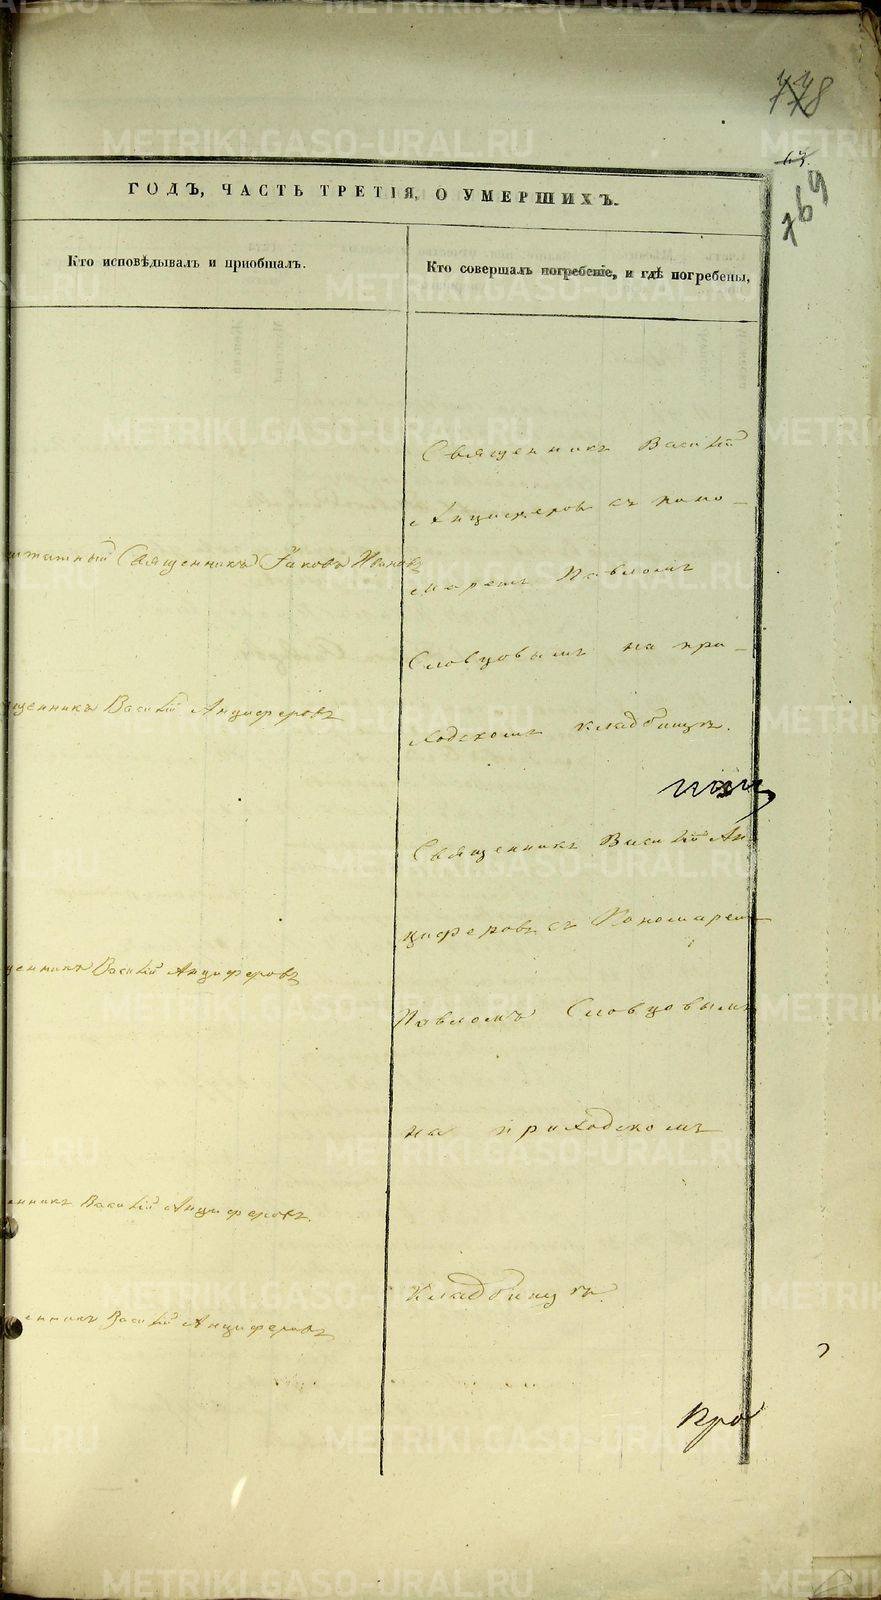 778
67.
769
ГОДЪ, ЧАСТЬ ТРЕТІЯ, О УМЕРШИХЪ.
Кто исповѣдывалъ и пріобщалъ.
Кто совершалъ погребеніе, и гдѣ погребены,
Священникъ Іаковъ Ивановъ
щенникъ Василій Анциферовъ
щенникъ Василій Анциферовъ
енникъ Василій Анциферовъ.
енникъ Василій Анциферовъ
Священникъ Василій
Анциферовъ съ поно-
маремъ Павломъ
Словцовымъ на при-
ходскомъ кладбищѣ.
Священникъ Василій Ан-
циферовъ съ Пономаремъ
Павломъ Словцовымъ
на приходскомъ
кладбищѣ.
Про
METRIKI.GASO-URAL.RU